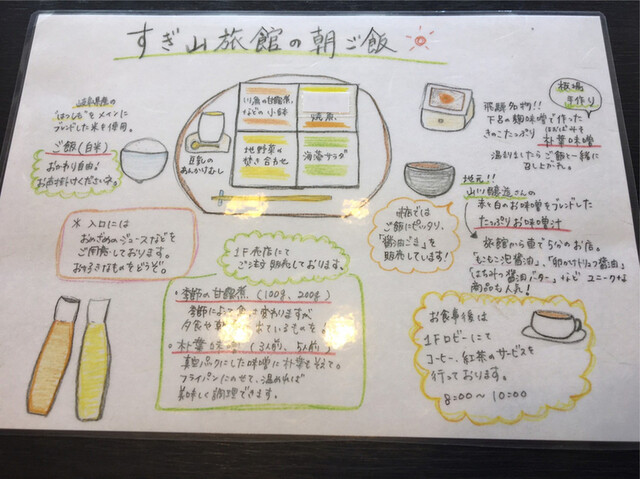 すぎ山旅館の朝ご飯
岐阜県産の
"はつしも"をメインに
ブレンドした米を使用。
ご飯(白米)
おかわり自由!
お声掛けくださいネ。
川魚の甘露煮
などの小鉢
焼魚
地野菜の
炊き合わせ
海藻サラダ
豆乳の
あんかけむし
板場
手作り
飛騨名物!!
下呂の麹味噌で作った
きのこたっぷり
ほおばみそ
朴葉味噌
温まりましたらご飯と一緒に
召し上がれ。
地元!!
山川醸造さんの
赤と白のお味噌をブレンドした
たっぷりお味噌汁
旅館から車で5分のお店。
「もこもこ泡醤油」、「卵のサトウフ醤油」
「はちみつ醤油バター」など ユニークな
商品も人気!
売店では
ご飯にピッタリ、
「醤油ごま」を
販売しています!
※ 入口には
おめざめのジュースなどを
ご用意しております。
お好きなものをどうぞ。
1F売店にて
ご注文販売しております。
・季節の甘露煮 (100g、200g)
季節によって 変わりますが
夕食や ているものを
・朴葉 (3人前、5人前)
真空パックにした味噌に朴葉を添えて。
フライパンにのせて、温めれば
美味しく調理できます。
お食事後は
1Fロビーにて
コーヒー、紅茶のサービスを
行っております。
8:00〜10:00